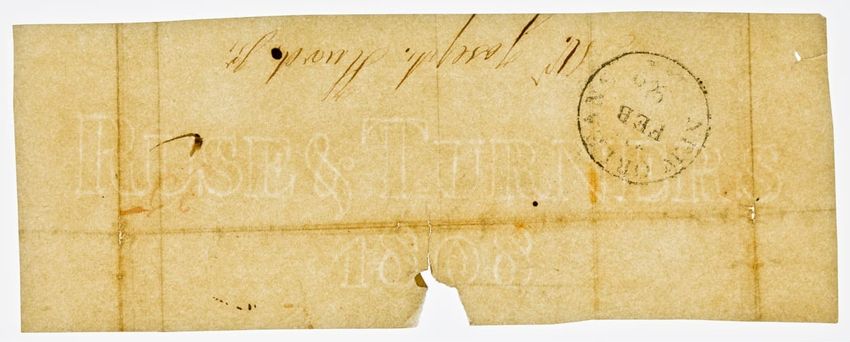 Mr. Joseph
NEW ORLEANS
FEB
RUSE & TURNERS
1808